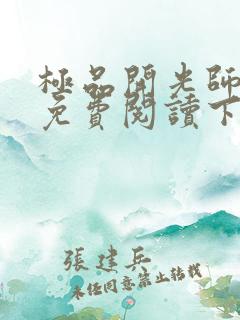 極品開光師
免費閱讀下
張建兵
未經同意禁止轉載